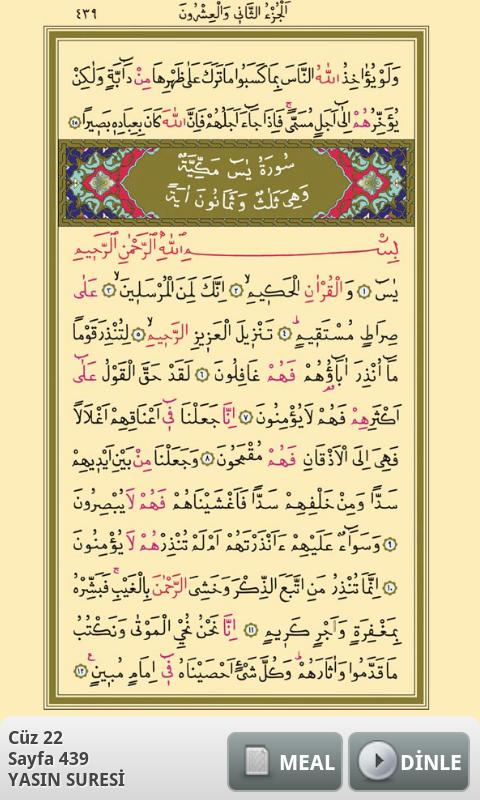 اَلْجُزْءُ الثَّانِي وَالْعِشْرُونَ
٤٣٩
وَلَوْ يُؤَاخِذُ اللّٰهُ النَّاسَ بِمَا كَسَبُوا مَا تَرَكَ عَلٰى ظَهْرِهَا مِنْ دَٓابَّةٍ وَلٰكِنْ
يُؤَخِّرُهُمْ اِلٰٓى اَجَلٍ مُسَمًّىۚ فَاِذَا جَٓاءَ اَجَلُهُمْ فَاِنَّ اللّٰهَ كَانَ بِعِبَادِهٖ بَصٖيرًا ﴿٤٥﴾
سُورَةُ يٰسٓ مَكِّيَّةٌ
وَهِيَ ثَلٰثٌ وَثَمَانُونَ اٰيَةً
بِسْمِ اللّٰهِ الرَّحْمٰنِ الرَّحٖيمِ
يٰسٓ ﴿١﴾ وَالْقُرْاٰنِ الْحَكٖيمِۙ ﴿٢﴾ اِنَّكَ لَمِنَ الْمُرْسَلٖينَۙ ﴿٣﴾ عَلٰى
صِرَاطٍ مُسْتَقٖيمٍؕ ﴿٤﴾ تَنْزٖيلَ الْعَزٖيزِ الرَّحٖيمِۙ ﴿٥﴾ لِتُنْذِرَ قَوْمًا
مَٓا اُنْذِرَ اٰبَٓاؤُ۬هُمْ فَهُمْ غَافِلُونَ ﴿٦﴾ لَقَدْ حَقَّ الْقَوْلُ عَلٰٓى
اَكْثَرِهِمْ فَهُمْ لَا يُؤْمِنُونَ ﴿٧﴾ اِنَّا جَعَلْنَا فٖٓي اَعْنَاقِهِمْ اَغْلَالًا
فَهِيَ اِلَى الْاَذْقَانِ فَهُمْ مُقْمَحُونَ ﴿٨﴾ وَجَعَلْنَا مِنْ بَيْنِ اَيْدٖيهِمْ
سَدًّا وَمِنْ خَلْفِهِمْ سَدًّا فَاَغْشَيْنَاهُمْ فَهُمْ لَا يُبْصِرُونَ
﴿٩﴾ وَسَوَٓاءٌ عَلَيْهِمْ ءَاَنْذَرْتَهُمْ اَمْ لَمْ تُنْذِرْهُمْ لَا يُؤْمِنُونَ
﴿١٠﴾ اِنَّمَا تُنْذِرُ مَنِ اتَّبَعَ الذِّكْرَ وَخَشِيَ الرَّحْمٰنَ بِالْغَيْبِۚ فَبَشِّرْهُ
بِمَغْفِرَةٍ وَاَجْرٍ كَرٖيمٍ ﴿١١﴾ اِنَّا نَحْنُ نُحْيِ الْمَوْتٰى وَنَكْتُبُ
مَا قَدَّمُوا وَاٰثَارَهُمْؕ وَكُلَّ شَيْءٍ اَحْصَيْنَاهُ فٖٓي اِمَامٍ مُبٖينٍ۟ ﴿١٢﴾
Cüz 22
Sayfa 439
YASIN SURESİ
MEAL
DİNLE